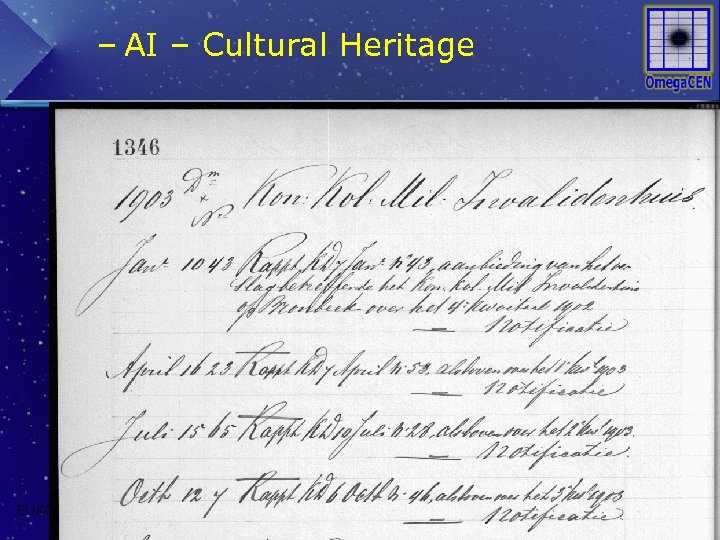 – AI – Cultural Heritage
OmegaCEN
1346
1903 Dm x No Kon: Kol: Mil: Invalidenhuis.
Janr 10 43 Rappt Kd 7 Janr No 43, aanbieding van het ver
slag betreffende het Kon. Kol. Mil Invalidenhuis
op Bronbeek over het 4e kwartaal 1902
— Notificatie
April 16 23 Rappt Kd 7 April No 53, alsboven over het 1e kwl 1903
— Notificatie
Juli 15 65 Rappt Kd 10 Juli No 28, alsboven over het 2e kwl 1903.
— Notificatie.
Octb 12 7 Rappt Kd 6 Octb No 46, alsboven over het 3e kwl 1903
— Notificatie